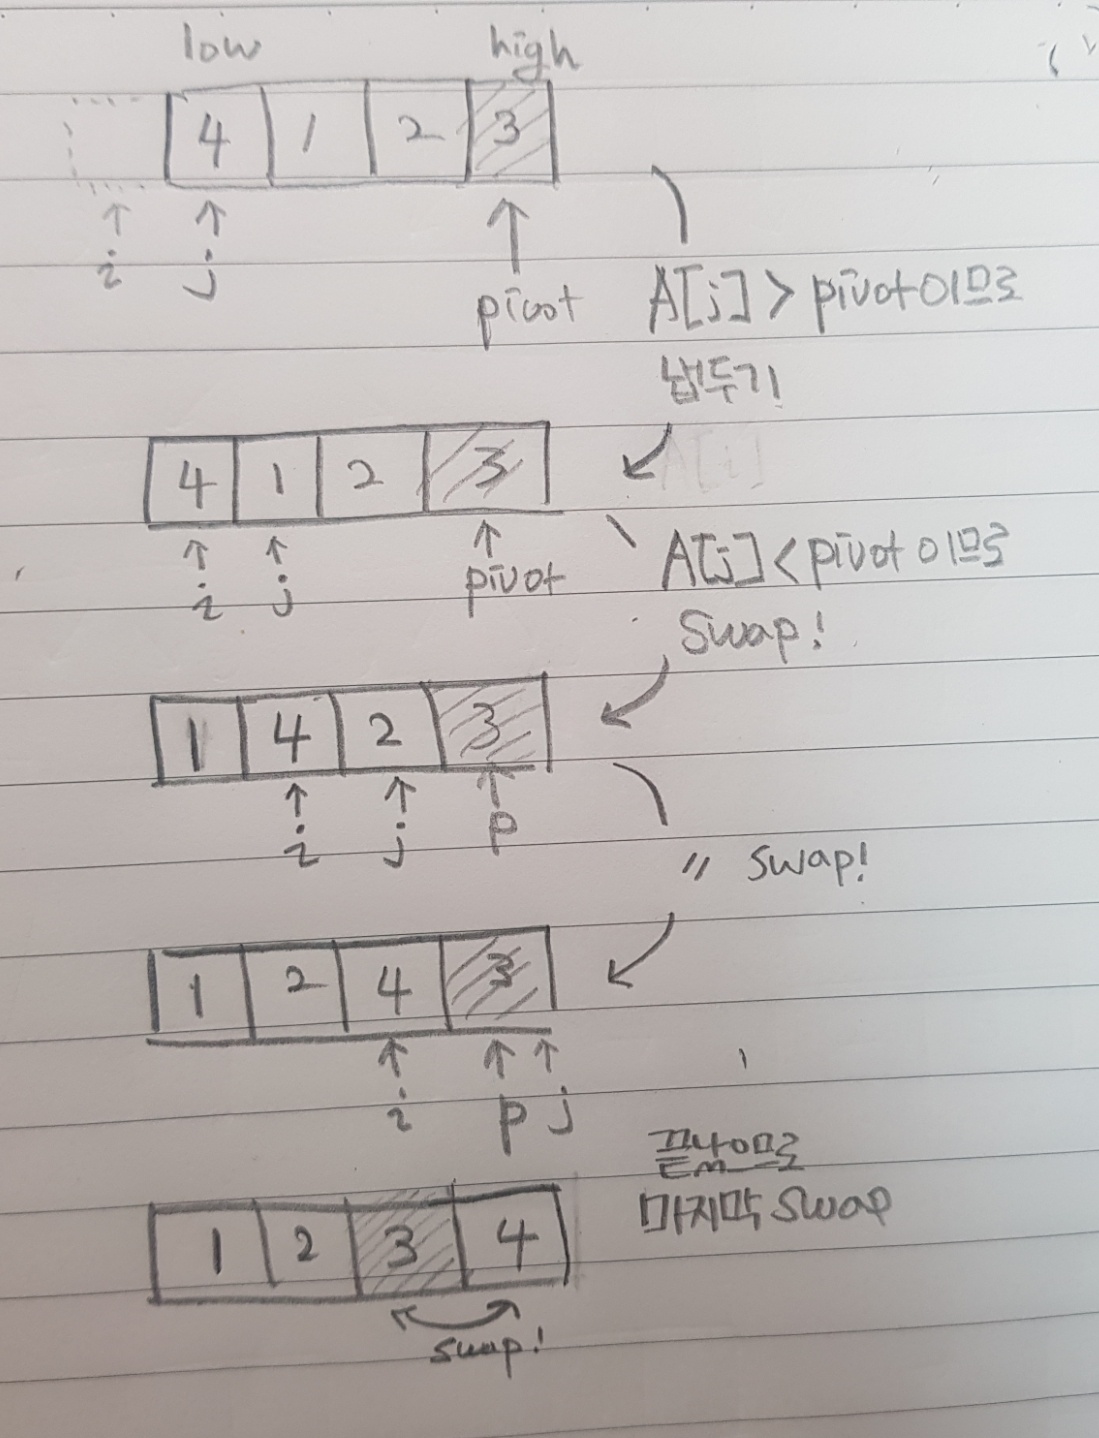 low high
4 1 2 3
i j
pivot
A[j] > pivot이므로
냅두기
4 1 2 3
i j pivot
A[j] < pivot이므로
Swap!
1 4 2 3
i j p
〃 swap!
1 2 4 3
i p j
끝났으므로
마지막 swap
1 2 3 4
swap!